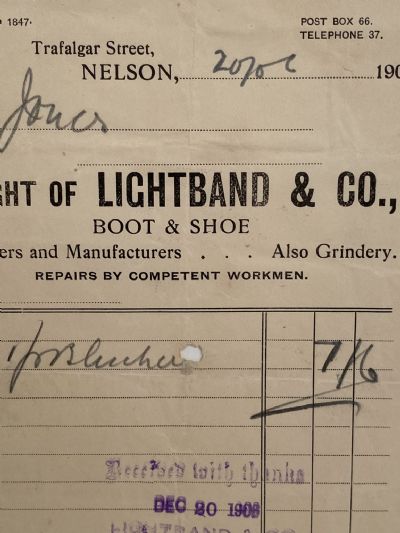 1847.
POST BOX 66.
TELEPHONE 37.
Trafalgar Street,
NELSON, 190
Jones
GHT OF LIGHTBAND & CO.,
BOOT & SHOE
ers and Manufacturers . . . Also Grindery.
REPAIRS BY COMPETENT WORKMEN.
1 pr Blucher 7/6
Received with thanks
DEC 20 1906
LIGHTBAND & CO